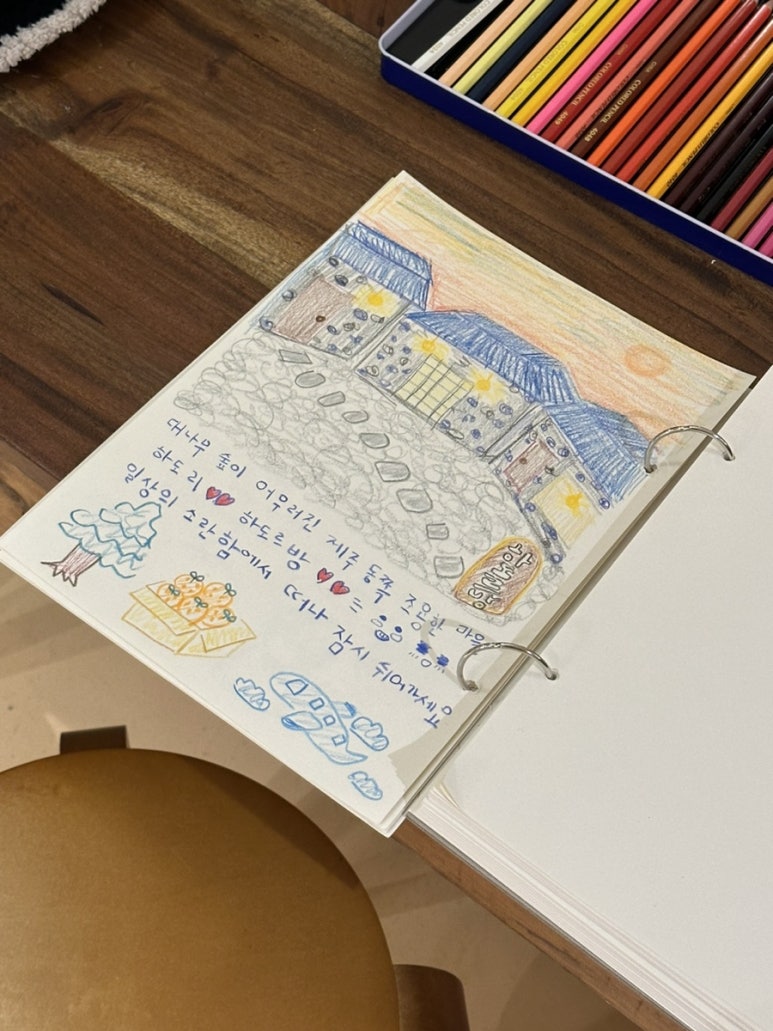 하도르방
대나무 숲이 어우러진 제주 동쪽 조용한 마을
하도리 ♥♥ 하도르방 ♥♥
일상의 소란함에서 떠나 잠시 쉬어가세요
COLORED PENCIL
COLORED PENCIL